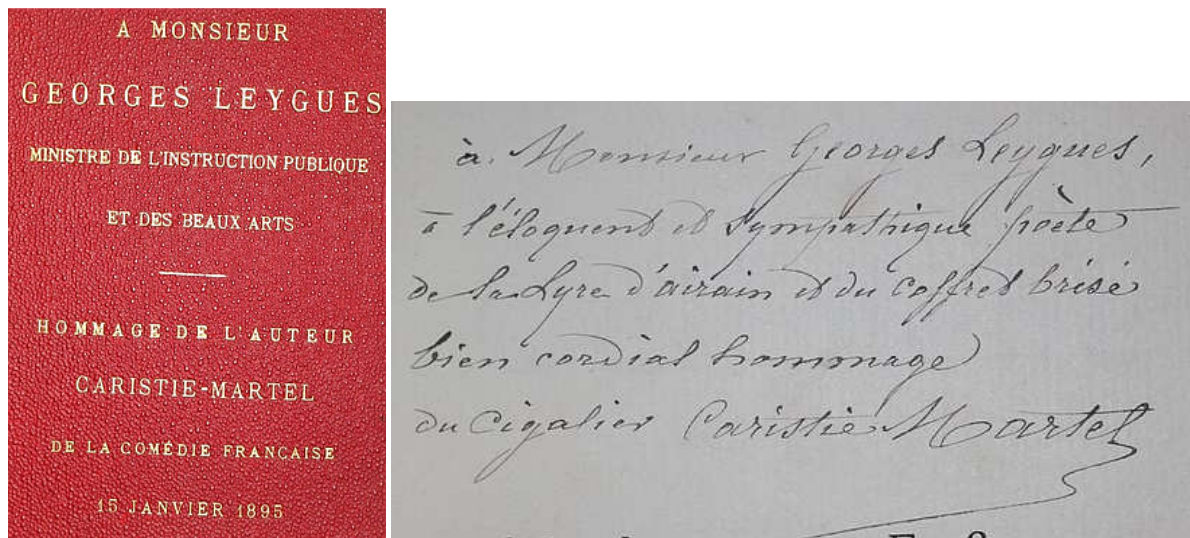 A MONSIEUR
GEORGES LEYGUES
MINISTRE DE L'INSTRUCTION PUBLIQUE
ET DES BEAUX ARTS
HOMMAGE DE L'AUTEUR
CARISTIE-MARTEL
DE LA COMÉDIE FRANÇAISE
15 JANVIER 1895
à Monsieur Georges Leygues,
à l'éloquent et sympathique poète
de la Lyre d'airain et du coffret brisé
bien cordial hommage
du Cigalier Caristie Martel